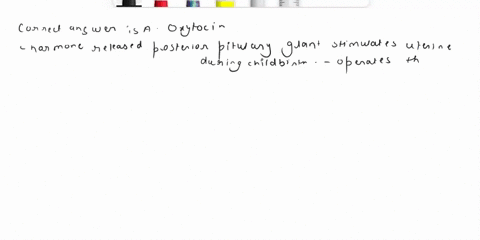 Correct answer is A. Oxytocin
- hormone released posterior pitulary glant stimulates uterine
during childbirth. - operates th